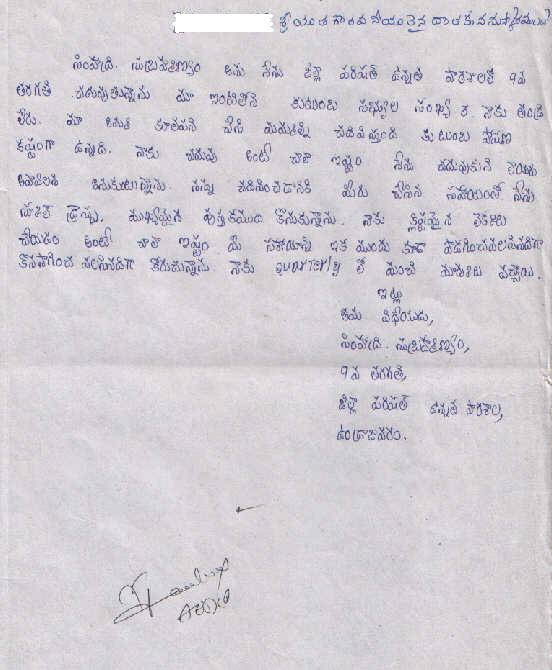 శ్రీయుత గౌరవనీయులైన దాతకు నమస్కారములు
సింహాద్రి. సుబ్రహ్మణ్యం అను నేను జిల్లా పరిషత్ ఉన్నత పాఠశాలలో 9వ
తరగతి చదువుతున్నాను మా ఇంటిలోని కుటుంబ సభ్యుల సంఖ్య నాకు తండ్రి
లేరు. మా అమ్మ కూలిపని చేసి మమ్మల్ని చదివిస్తుంది కుటుంబ పోషణ
కష్టంగా ఉన్నది. నాకు చదువు అంటే చాలా ఇష్టం నేను చదువుకుని
అనుకుంటున్నాను. నన్ను చదివించడానికి మీరు చేసిన సహాయంలో నేను
స్కూల్ డ్రస్సు, ముఖ్యమైన పుస్తకములు కొనుకున్నాను. నాకు క్లిష్టమైన లెక్కలు
చేయడం అంటే చాలా ఇష్టం. మీ సహాయాన్ని ఇక ముందు కూడా
కొనసాగించ వలసినదిగా కోరుచున్నాను నాకు quarterly లో మంచి మార్కులు వచ్చాయి.
ఇట్లు
తమ విధేయుడు,
సింహాద్రి. సుబ్రహ్మణ్యం,
9వ తరగతి,
జిల్లా పరిషత్ ఉన్నత పాఠశాల,
ఉండ్రాజవరం.